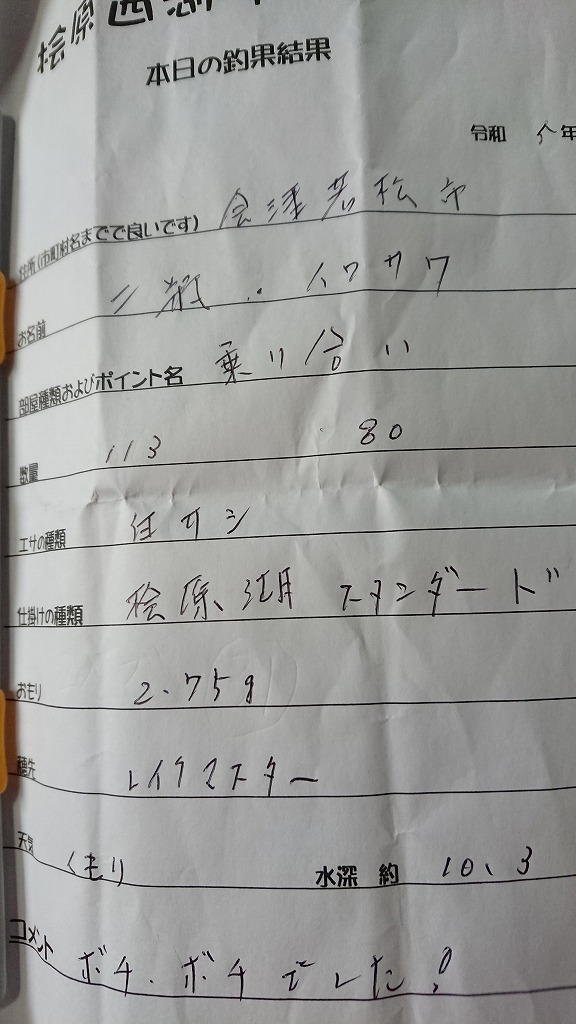 桧原西湖
本日の釣果結果
令和 八年
住所(市町村名までで良いです) 会津若松市
お名前 二瓶.イワサワ
部屋種類およびポイント名 乗り合い
数量 113 80
エサの種類 紅サシ
仕掛けの種類 桧原湖 スタンダード
おもり 2.75g
穂先 レイクマスター
天気 くもり 水深 約 10、3
コメント ボチ.ボチでした!